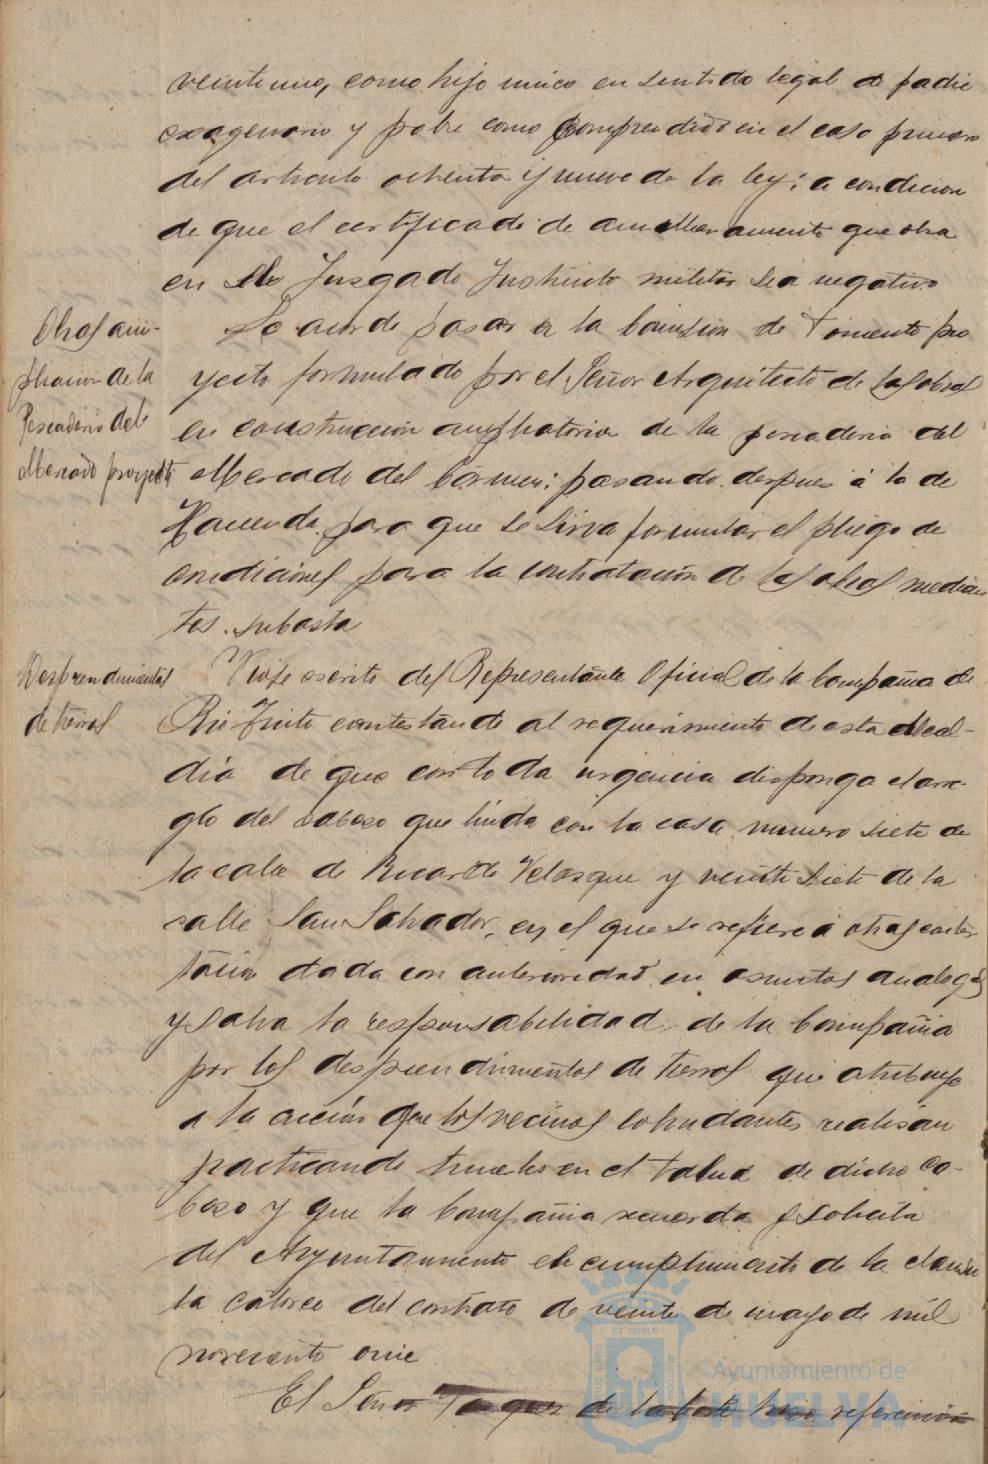 veintiuno, como hijo unico en sentido legal de padre
exagenario y pobre como comprendido en el caso primero
del articulo ochenta y nueve de la ley; a condicion
de que el certificado de amillaramiento que obra
en el Juzgado Instructor militar sea negativo
Obras am-
pliacion de la
Pescaderia del
Mercado proyecto
Se acuerde pasar a la Comision de Fomento pro
yecto formulado por el Señor Arquitecto de las obras
en construccion ampliatoria de la pescaderia del
Mercado del Carmen; pasando despues á la de
Hacienda para que se sirva formular el pliego de
condiciones para la contratación de las obras median
tes subasta
Desprendimientos
de tierras
Viose escrito del Representante Oficial de la Compañia de
Rio Tinto contestando al requerimiento de esta Alcal-
dia de que con toda urgencia disponga el arre-
glo del cabezo que linda con la casa numero siete de
la calle de Ricardo Velasque y veinte siete de la
calle San Salvador, en el que se refiere á otras contes
tación dada con anterioridad en asuntos analogos
y salva la responsabilidad de la Compañia
por los desprendimientos de tierras que atribuye
a la acción que los vecinos colindantes realizan
practicando en el talud de dicho ca-
bezo y que la Compañia recuerda y solicita
del Ayuntamiento el cumplimiento de la clausu
la catorce del contrato de veinte de mayo de mil
noveciento once
El Señor de la hizo referencia
Ayuntamiento de
HUELVA